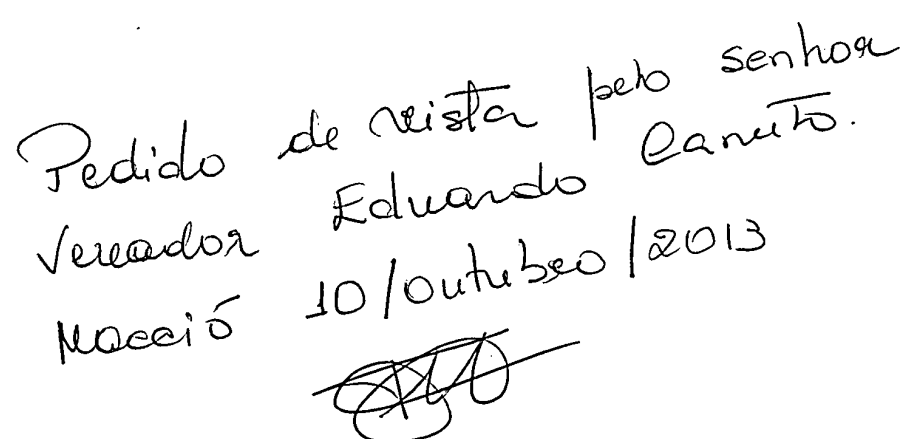 Pedido de vista pelo senhor
Vereador Eduardo Canuto.
Maceió 10/outubro/2013